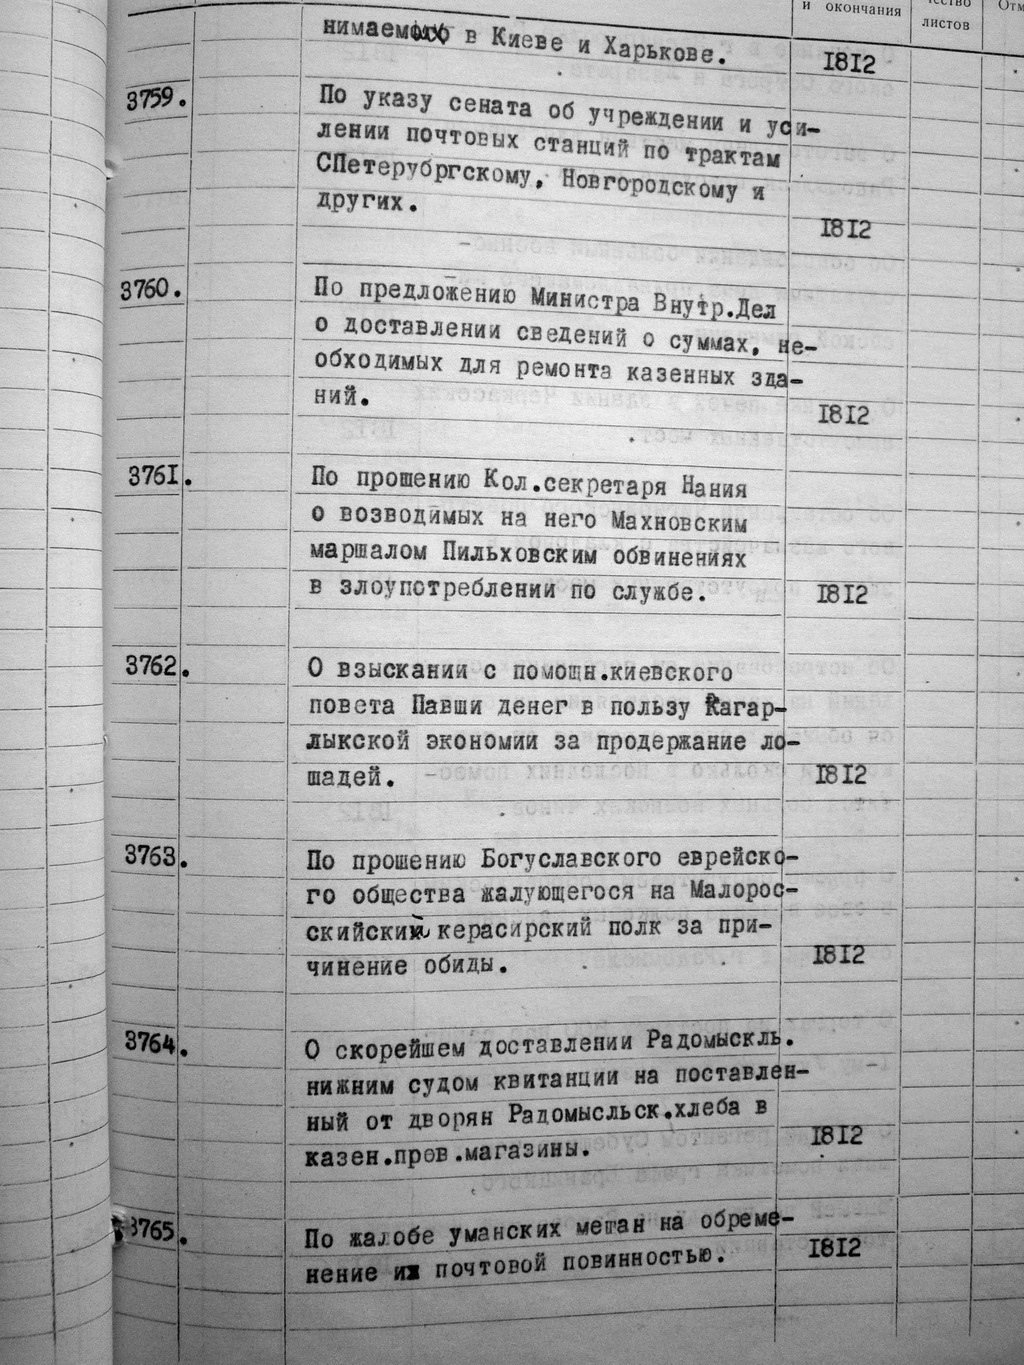 и окончания
листов
нимаемых в Киеве и Харькове.
1812
3759.
По указу сената об учреждении и уси-
лении почтовых станций по трактам
СПетерубргскому, Новгородскому и
других.
1812
3760.
По предложению Министра Внутр.Дел
о доставлении сведений о суммах, не-
обходимых для ремонта казенных зда-
ний.
1812
3761.
По прошению Кол.секретаря Нания
о возводимых на него Махновским
маршалом Пильховским обвинениях
в злоупотреблении по службе.
1812
3762.
О взыскании с помощн.киевского
повета Павши денег в пользу Кагар-
лыкской экономии за продержание ло-
шадей.
1812
3763.
По прошению Богуславского еврейско-
го общества жалующегося на Малорос-
скийский керасирский полк за при-
чинение обиды.
1812
3764.
О скорейшем доставлении Радомыскль.
нижним судом квитанции на поставлен-
ный от дворян Радомысльск.хлеба в
казен.пров.магазины.
1812
3765.
По жалобе уманских мещан на обреме-
нение их почтовой повинностью.
1812